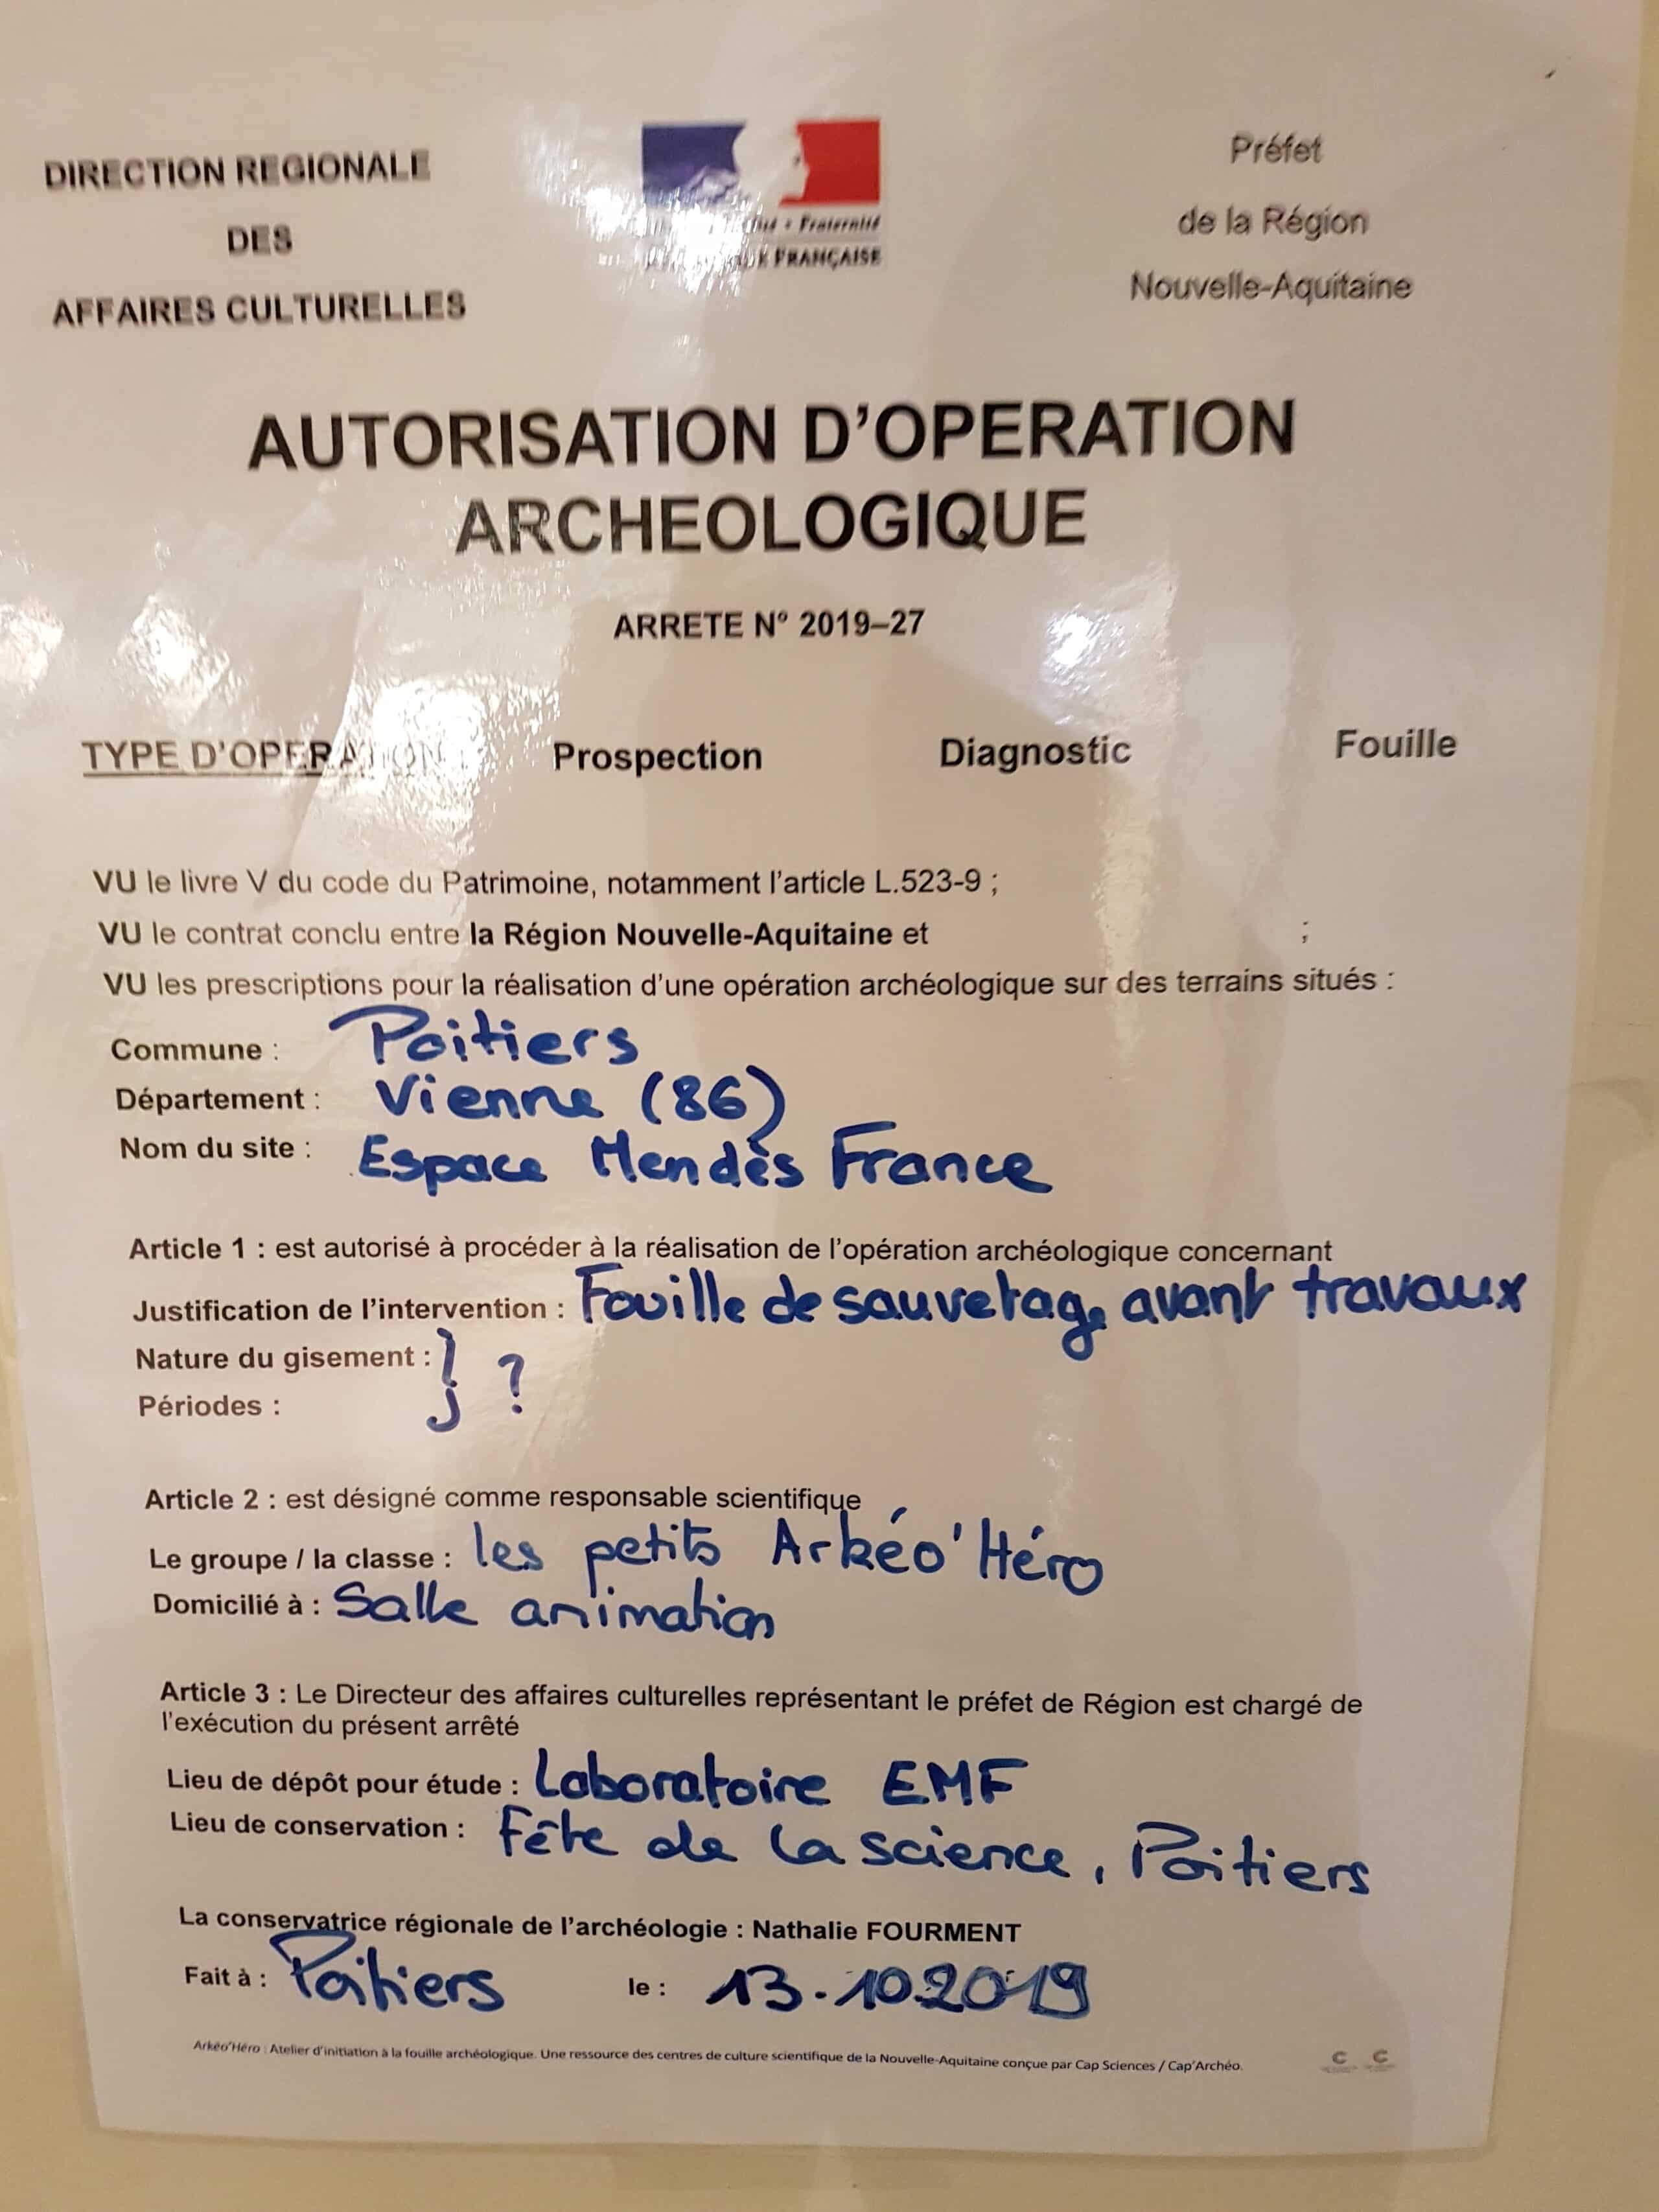 DIRECTION REGIONALE
DES
AFFAIRES CULTURELLES
Fraternité
FRANÇAISE
Préfet
de la Région
Nouvelle-Aquitaine
AUTORISATION D'OPERATION
ARCHEOLOGIQUE
ARRETE N° 2019–27
TYPE D'OPERATION : Prospection Diagnostic Fouille
VU le livre V du code du Patrimoine, notamment l'article L.523-9 ;
VU le contrat conclu entre la Région Nouvelle-Aquitaine et ;
VU les prescriptions pour la réalisation d'une opération archéologique sur des terrains situés :
Commune : Poitiers
Département : Vienne (86)
Nom du site : Espace Mendès France
Article 1 : est autorisé à procéder à la réalisation de l'opération archéologique concernant
Justification de l'intervention : Fouille de sauvetage avant travaux
Nature du gisement : } ?
Périodes :
Article 2 : est désigné comme responsable scientifique
Le groupe / la classe : les petits Arkéo'Héro
Domicilié à : Salle animation
Article 3 : Le Directeur des affaires culturelles représentant le préfet de Région est chargé de
l'exécution du présent arrêté
Lieu de dépôt pour étude : Laboratoire EMF
Lieu de conservation : Fête de la science, Poitiers
La conservatrice régionale de l'archéologie : Nathalie FOURMENT
Fait à : Poitiers le : 13.10.2019
Arkéo'Héro : Atelier d'initiation à la fouille archéologique. Une ressource des centres de culture scientifique de la Nouvelle-Aquitaine conçue par Cap Sciences / Cap'Archéo.